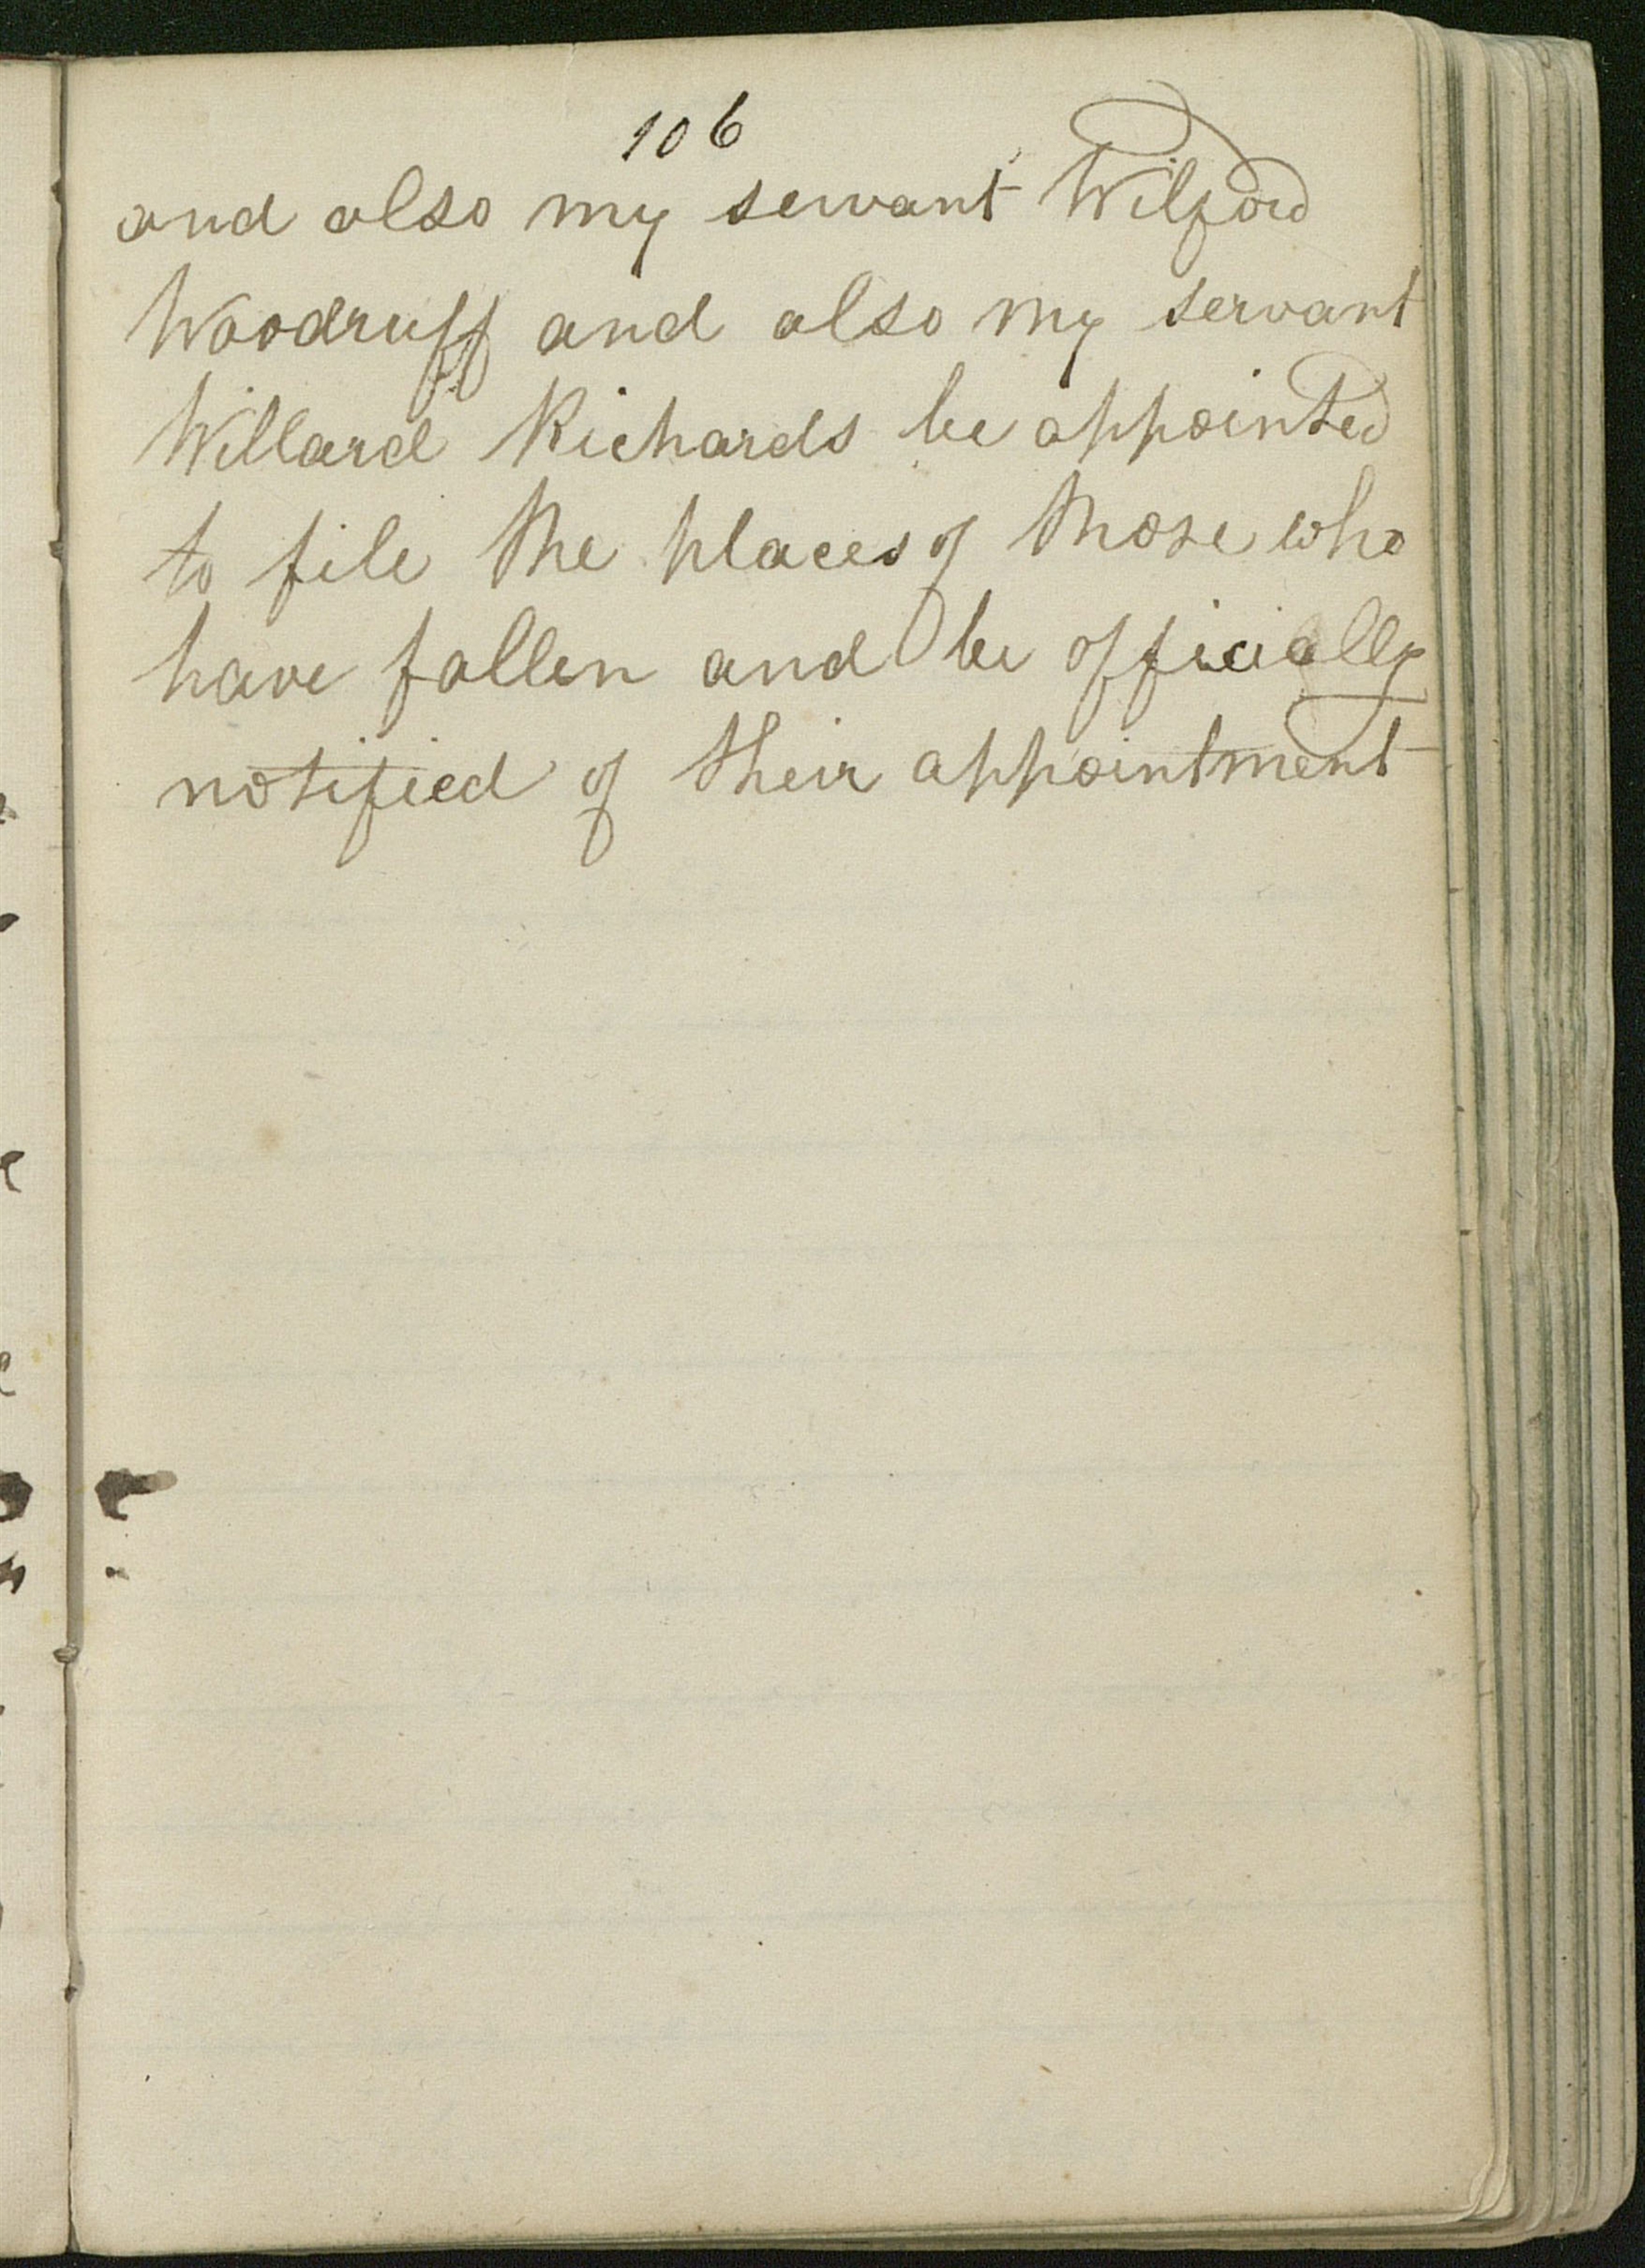 106
and also my servant Wilford
Woodruff and also my servant
Willard Richards be appointed
to fill the places of those who
have fallen and be officially
notified of their appointment